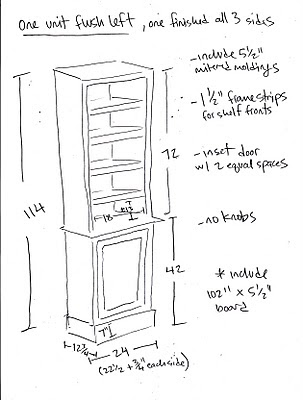 one unit flush left, one finished all 3 sides
-include 5½"
mitered moldings
-1½" frame strips
for shelf fronts
72
-inset door
w/ 2 equal spaces
114
18
-no knobs
42
* include
102" x 5½"
board
7"
12¾
24
(22½ + ¾" each side)